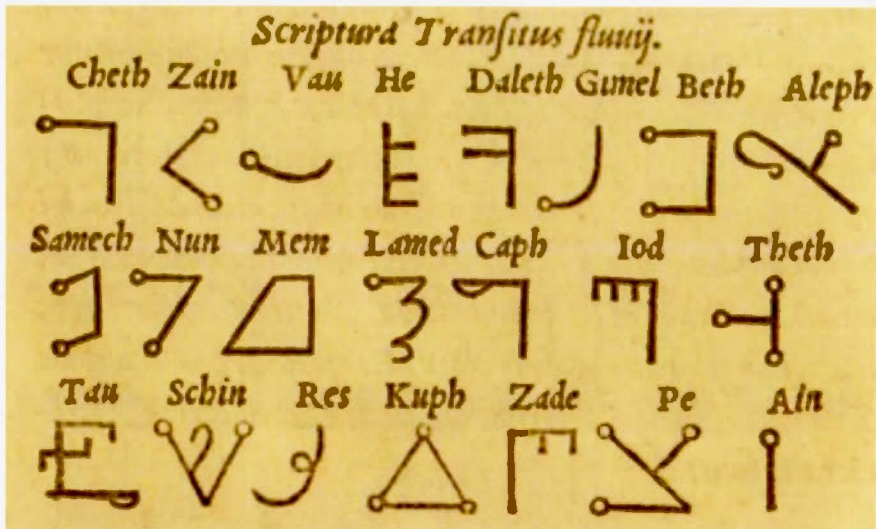 Scriptura Tranſitus fluuij.
Cheth Zain Vau He Daleth Gimel Beth Aleph
Samech Nun Mem Lamed Caph Iod Theth
Tau Schin Res Kuph Zade Pe Ain